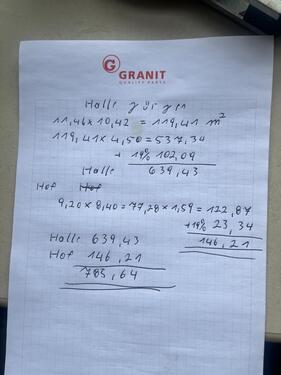 GRANIT
QUALITY PARTS
Halle Jürgen
11,46 x 10,42 = 119,41 m²
119,41 x 4,50 = 537,34
+ 19% 102,09
Halle 639,43
Hof Hof
9,20 x 8,40 = 77,28 x 1,59 = 122,87
+19% 23,34
146,21
Halle 639,43
Hof 146,21
785,64